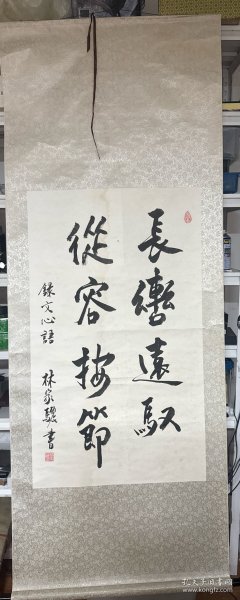 長轡遠馭
從容按節
錄文心語
林家驪書
孔夫子旧书网
www.kongfz.com